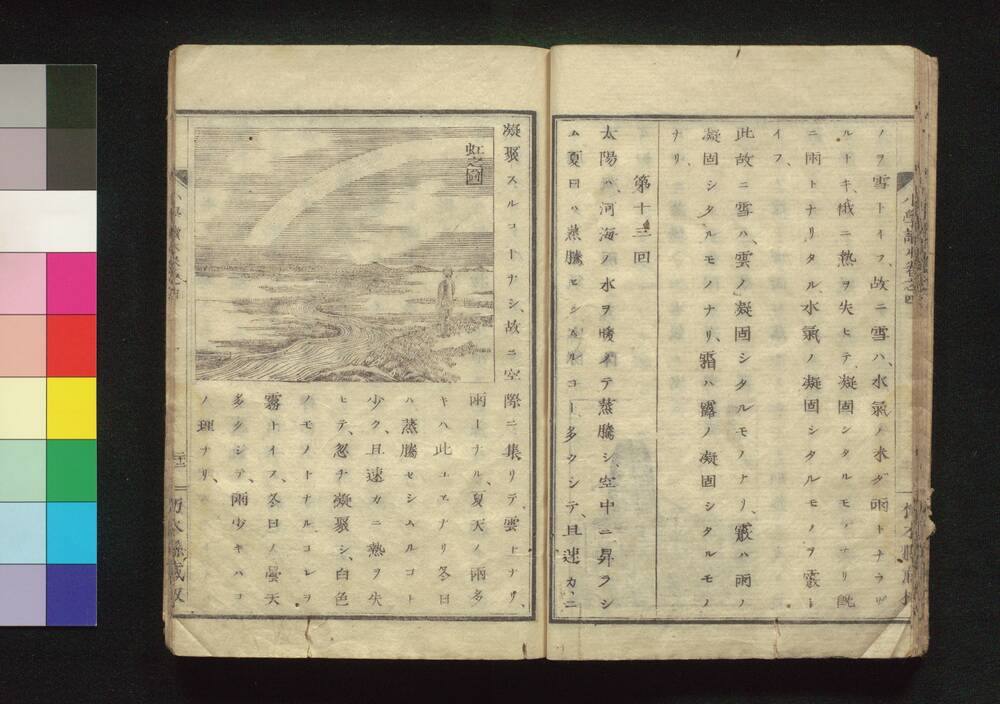 ノヲ雪トイフ、故ニ雪ハ、水氣ノ未ダ雨トナラザ
ルトキ、俄ニ熱ヲ失ヒテ凝固シタルモノナリ既
ニ雨トナリタル、水氣ノ凝固シタルモノヲ霰ト
イフ、
此故ニ雪ハ、雲ノ凝固シタルモノナリ、霰ハ雨ノ
凝固シタルモノナリ、霜ハ露ノ凝固シタルモノ
ナリ、
第十三回
太陽ハ、河海ノ水ヲ暖メテ蒸騰シ、空中ニ昇ラシ
ム夏日ハ蒸騰セシムルコト多クシテ、且速カニ
凝聚スルコトナシ、故ニ空際ニ集リテ、雲トナリ、
虹之圖
雨トナル、夏天ノ雨多
キハ此ユヱナリ冬日
ハ蒸騰セシムルコト
少ク、且速カニ熱ヲ失
ヒテ、忽チ凝聚シ、白色
ノモノトナルコレヲ
霧トイフ、冬日ノ曇天
多クシテ、雨少キハコ
ノ理ナリ、